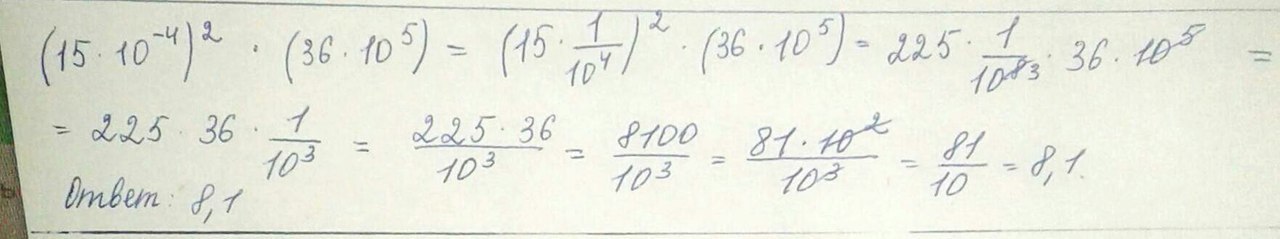 (15·10⁻⁴)² · (36·10⁵) = (15·1/10⁴)² · (36·10⁵) = 225·1/10⁸ ³·36·10⁵ =
= 225·36·1/10³ = 225·36/10³ = 8100/10³ = 81·10²/10³ = 81/10 = 8,1.
Ответ: 8,1